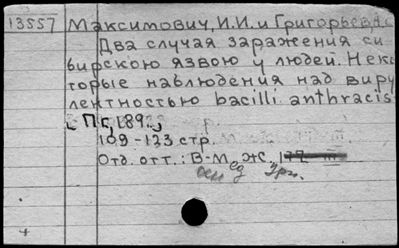 13557 Максимович, И.И. и Григорьев, А.С.
Два случая заражения си
бирскою язвою у людей. Неко
торые наблюдения над виру
лентностью bacilli anthracis
[Пг, 189.,
109-123 стр.
Отд. отт.: В-Мед Ж.